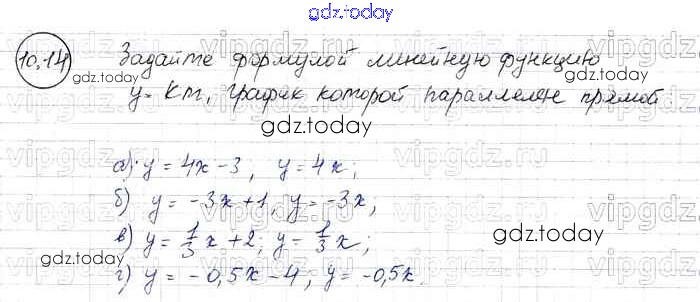 gdz.today
10.14 Задайте формулой линейную функцию
gdz.today
y = kx, график которой параллелен прямой
gdz.today
а) y = 4x - 3, y = 4x;
б) y = -3x + 1, y = -3x,
gdz.today
в) y = 1/3 x + 2; y = 1/3 x;
gdz.today
г) y = -0,5x - 4; y = -0,5x.
gdz.today